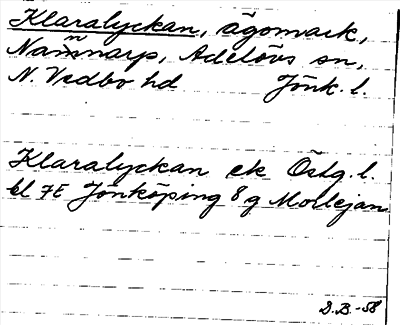 Klaralyckan, ägomark,
Namnarp, Adelövs sn,
N. Vedbo hd Jönk. l.
Klaralyckan ek Östg. l.
bl 7E Jönköping 8 g Morlejan
D.B.-58